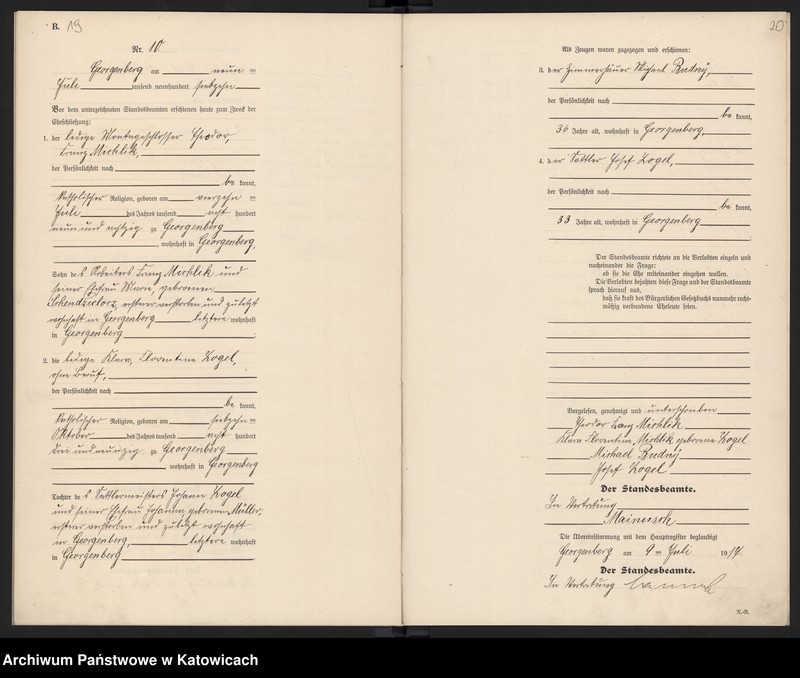 B. 19
Nr. 10
Georgenberg am neun ten
Juli tausend neunhundert siebzehn
Vor dem unterzeichneten Standesbeamten erschienen heute zum Zweck der
Eheschließung:
1. der ledige Montageschlosser Theodor,
Franz Michlik,
der Persönlichkeit nach
be kannt,
katholischer Religion, geboren am vierzehn ten
Juli des Jahres tausend acht hundert
neun und achtzig zu Georgenberg
, wohnhaft in Georgenberg,
Sohn des Arbeiters Franz Michlik und
seiner Ehefrau Marie, geborenen
ersterer verstorben und zuletzt
wohnhaft in Georgenberg letztere wohnhaft
in Georgenberg
2. die ledige Klara, Florentine Kogel,
ohne Beruf,
der Persönlichkeit nach
be kannt,
katholischer Religion, geboren am siebzehn ten
Oktober des Jahres tausend acht hundert
drei und neunzig zu Georgenberg
wohnhaft in Georgenberg
Tochter des Sattlermeisters Johann Kogel
und seiner Ehefrau Johanna, geborenen Müller,
ersterer verstorben und zuletzt wohnhaft
in Georgenberg, letztere wohnhaft
in Georgenberg
20
Als Zeugen waren zugezogen und erschienen:
3. der Zimmerhäuer Michael Rudny,
der Persönlichkeit nach
be kannt,
36 Jahre alt, wohnhaft in Georgenberg,
4. der Sattler Josef Kogel,
der Persönlichkeit nach
be kannt,
33 Jahre alt, wohnhaft in Georgenberg
Der Standesbeamte richtete an die Verlobten einzeln und
nacheinander die Frage:
ob sie die Ehe miteinander eingehen wollen.
Die Verlobten bejahten diese Frage und der Standesbeamte
sprach hierauf aus,
daß sie kraft des Bürgerlichen Gesetzbuchs nunmehr recht-
mäßig verbundene Eheleute seien.
Vorgelesen, genehmigt und unterschrieben
Theodor Franz Michlik
Klara Florentine Michlik geborene Kogel
Michael Rudny
Josef Kogel
Der Standesbeamte.
In Vertretung
Mainusch
Die Übereinstimmung mit dem Hauptregister beglaubigt
Georgenberg am 9 ten Juli 1917.
Der Standesbeamte.
In Vertretung
Archiwum Państwowe w Katowicach